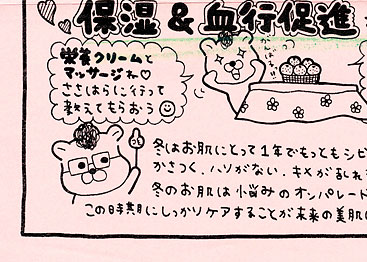 保湿 & 血行促進
栄養クリームと
マッサージね♡
ささはらに行って
教えてもらおう☺
冬はお肌にとって1年でもっともシビ
かさつく、ハリがない、キメが乱れ
冬のお肌は悩みのオンパレード
この時期にしっかりケアすることが未来の美肌